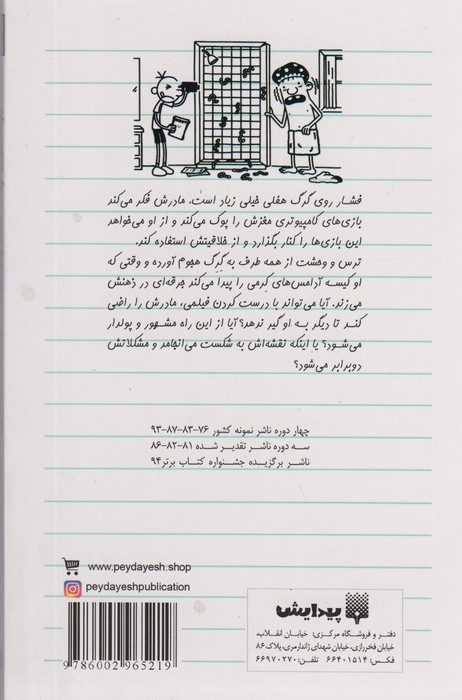 فشار روی گرگ هفلی خیلی زیاد است. مادرش فکر می‌کند
بازی‌های کامپیوتری مغزش را پوک می‌کند و از او می‌خواهد
این بازی‌ها را کنار بگذارد و از خلاقیتش استفاده کند.
ترس و وحشت از همه طرف به گِرِگ هجوم آورده و وقتی که
او کیسه آدامس‌های کِرمی را پیدا می‌کند جرقه‌ای در ذهنش
می‌زند. آیا می‌تواند با درست کردن فیلمی، مادرش را راضی
کند تا دیگر به او گیر ندهد؟ آیا از این راه مشهور و پولدار
می‌شود؟ یا اینکه نقشه‌اش به شکست می‌انجامد و مشکلاتش
دوبرابر می‌شود؟
چهار دوره ناشر نمونه کشور ۷۶-۸۳-۸۷-۹۳
سه دوره ناشر تقدیر شده ۸۱-۸۲-۸۶
ناشر برگزیده جشنواره کتاب برتر ۹۴
www.peydayesh.shop
peydayeshpublication
9 786002 965219
پیدایش
دفتر و فروشگاه مرکزی: خیابان انقلاب،
خیابان فخررازی، خیابان شهدای ژاندارمری، پلاک ۸۶
فکس: ۶۶۴۰۱۵۱۴ تلفن: ۶۶۹۷۰۲۷۰